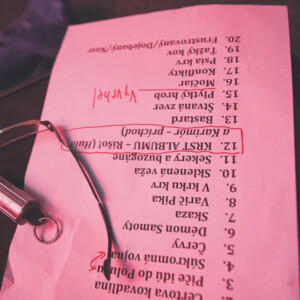 Čertova kovadlina
3. Piče idú do
4. Súkromná vojna
5. Červy
6. Démon Samoty
7. Skaza
8. Varič Pika
9. V krku krv
10. Sklenená veža
11. Sekery a buzogáne
12. KRST ALBUMU – Rišo! (Hulo
a Karimór – príchod)
13. Bastard
14. Štvaná zver
15. Plytký hrob
Vyvrhel
16. Močiar
17. Konflikty
18. Psia krv
19. Ťažký kov
20. Frustrovaný/Dojebaný/Nasr